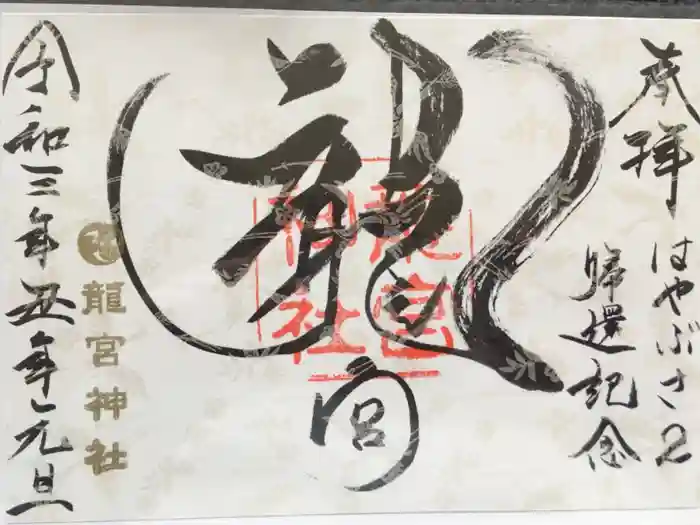 奉拝
はやぶさ2
帰還記念
龍宮
龍宮
神社
龍宮神社
令和三年丑年元旦